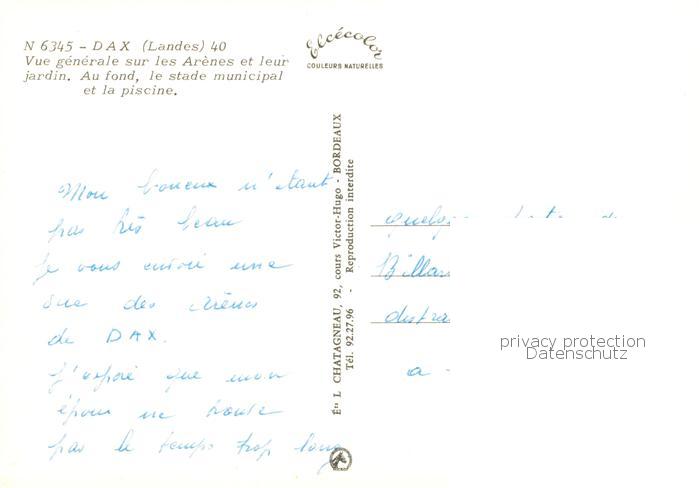 N 6345 - DAX (Landes) 40
Vue générale sur les Arènes et leur
jardin. Au fond, le stade municipal
et la piscine.
Elcécolor
COULEURS NATURELLES
Mon n'étant
pas très beau
je vous envoie une
vue des Arènes
de DAX.
J'espère que mon
époux ne trouve
pas le temps trop long
Éts L. CHATAGNEAU, 92, cours Victor-Hugo - BORDEAUX
Tél. 92.27.96 - Reproduction interdite
quelq
Billar
distra
a
privacy protection
Datenschutz